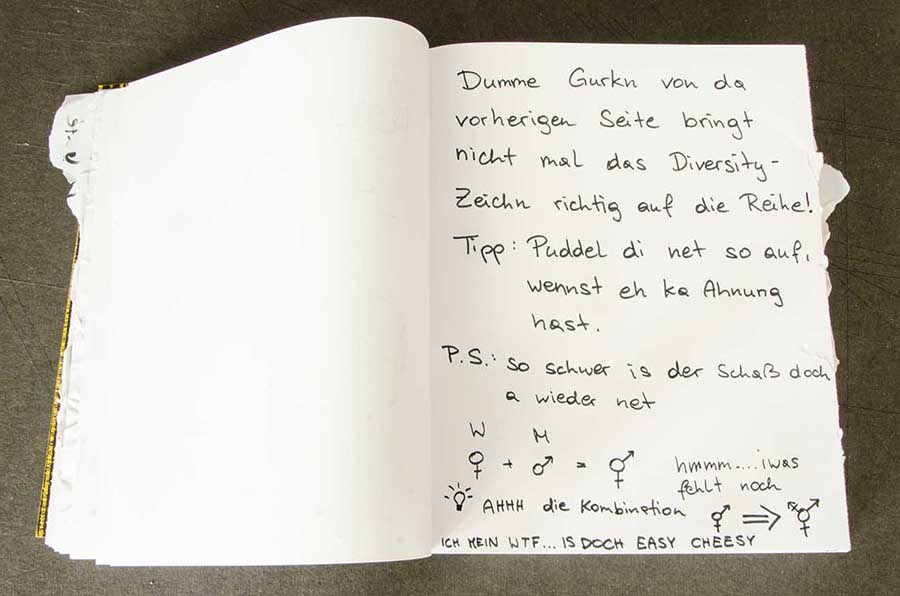 Dumme Gurkn von da
vorherigen Seite bringt
nicht mal das Diversity-
Zeichn richtig auf die Reihe!
Tipp: Puddel di net so auf,
wennst eh ka Ahnung
hast.
P.S.: so schwer is der Schaß doch
a wieder net
W M
♀ + ♂ = ⚥ hmmm....iwas
fehlt noch
AHHH die Kombination ⚥ ⇒ ⚧
ICH MEIN WTF... IS DOCH EASY CHEESY